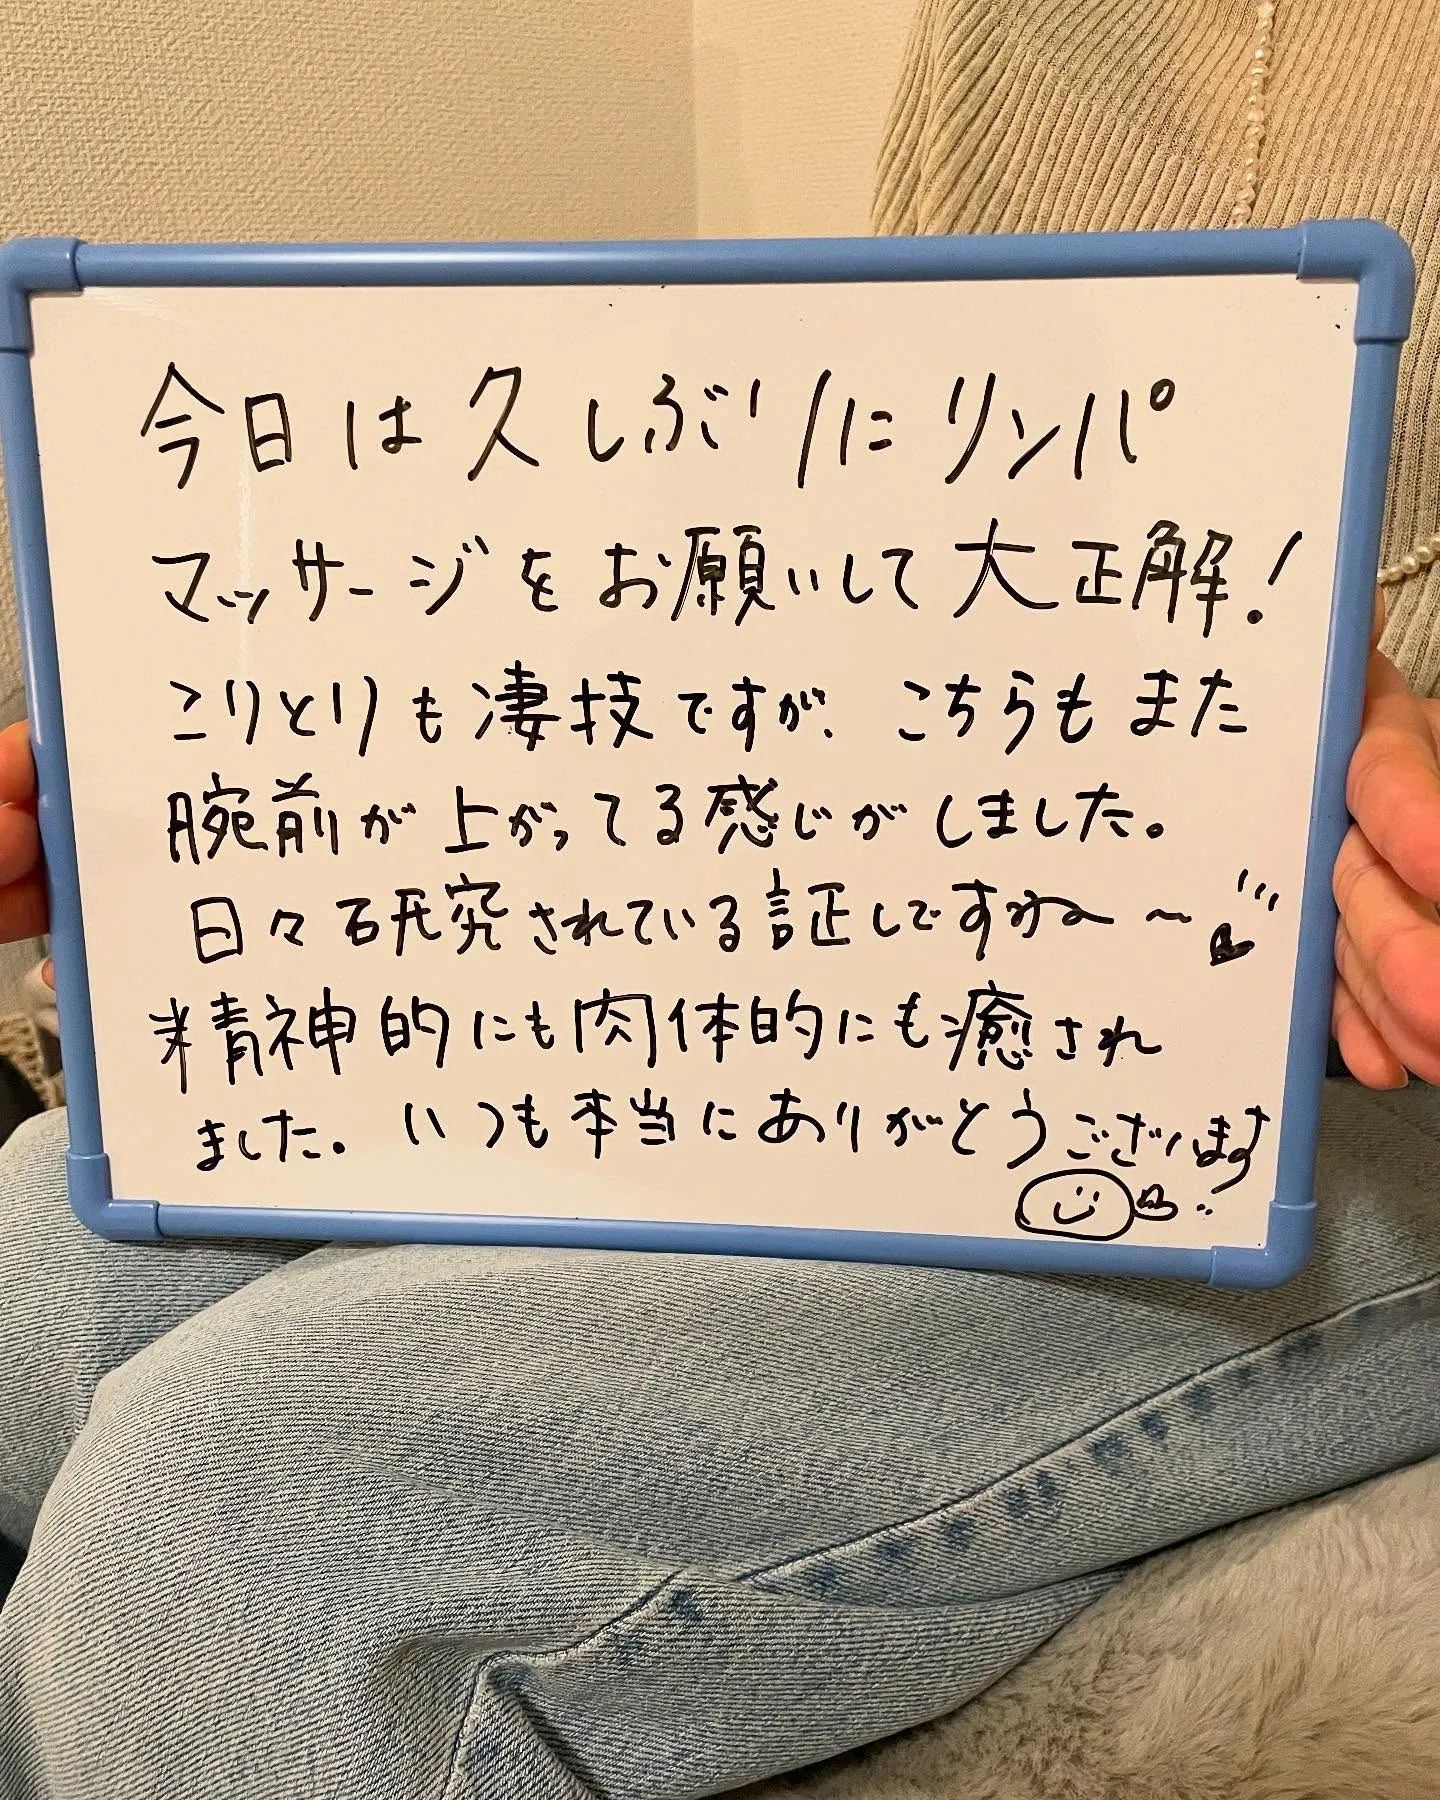 今日は久しぶりにリンパ
マッサージをお願いして大正解!
こりとりも凄技ですが、こちらもまた
腕前が上がってる感じがしました。
日々研究されている証しですね〜
精神的にも肉体的にも癒され
ました。いつも本当にありがとうございます